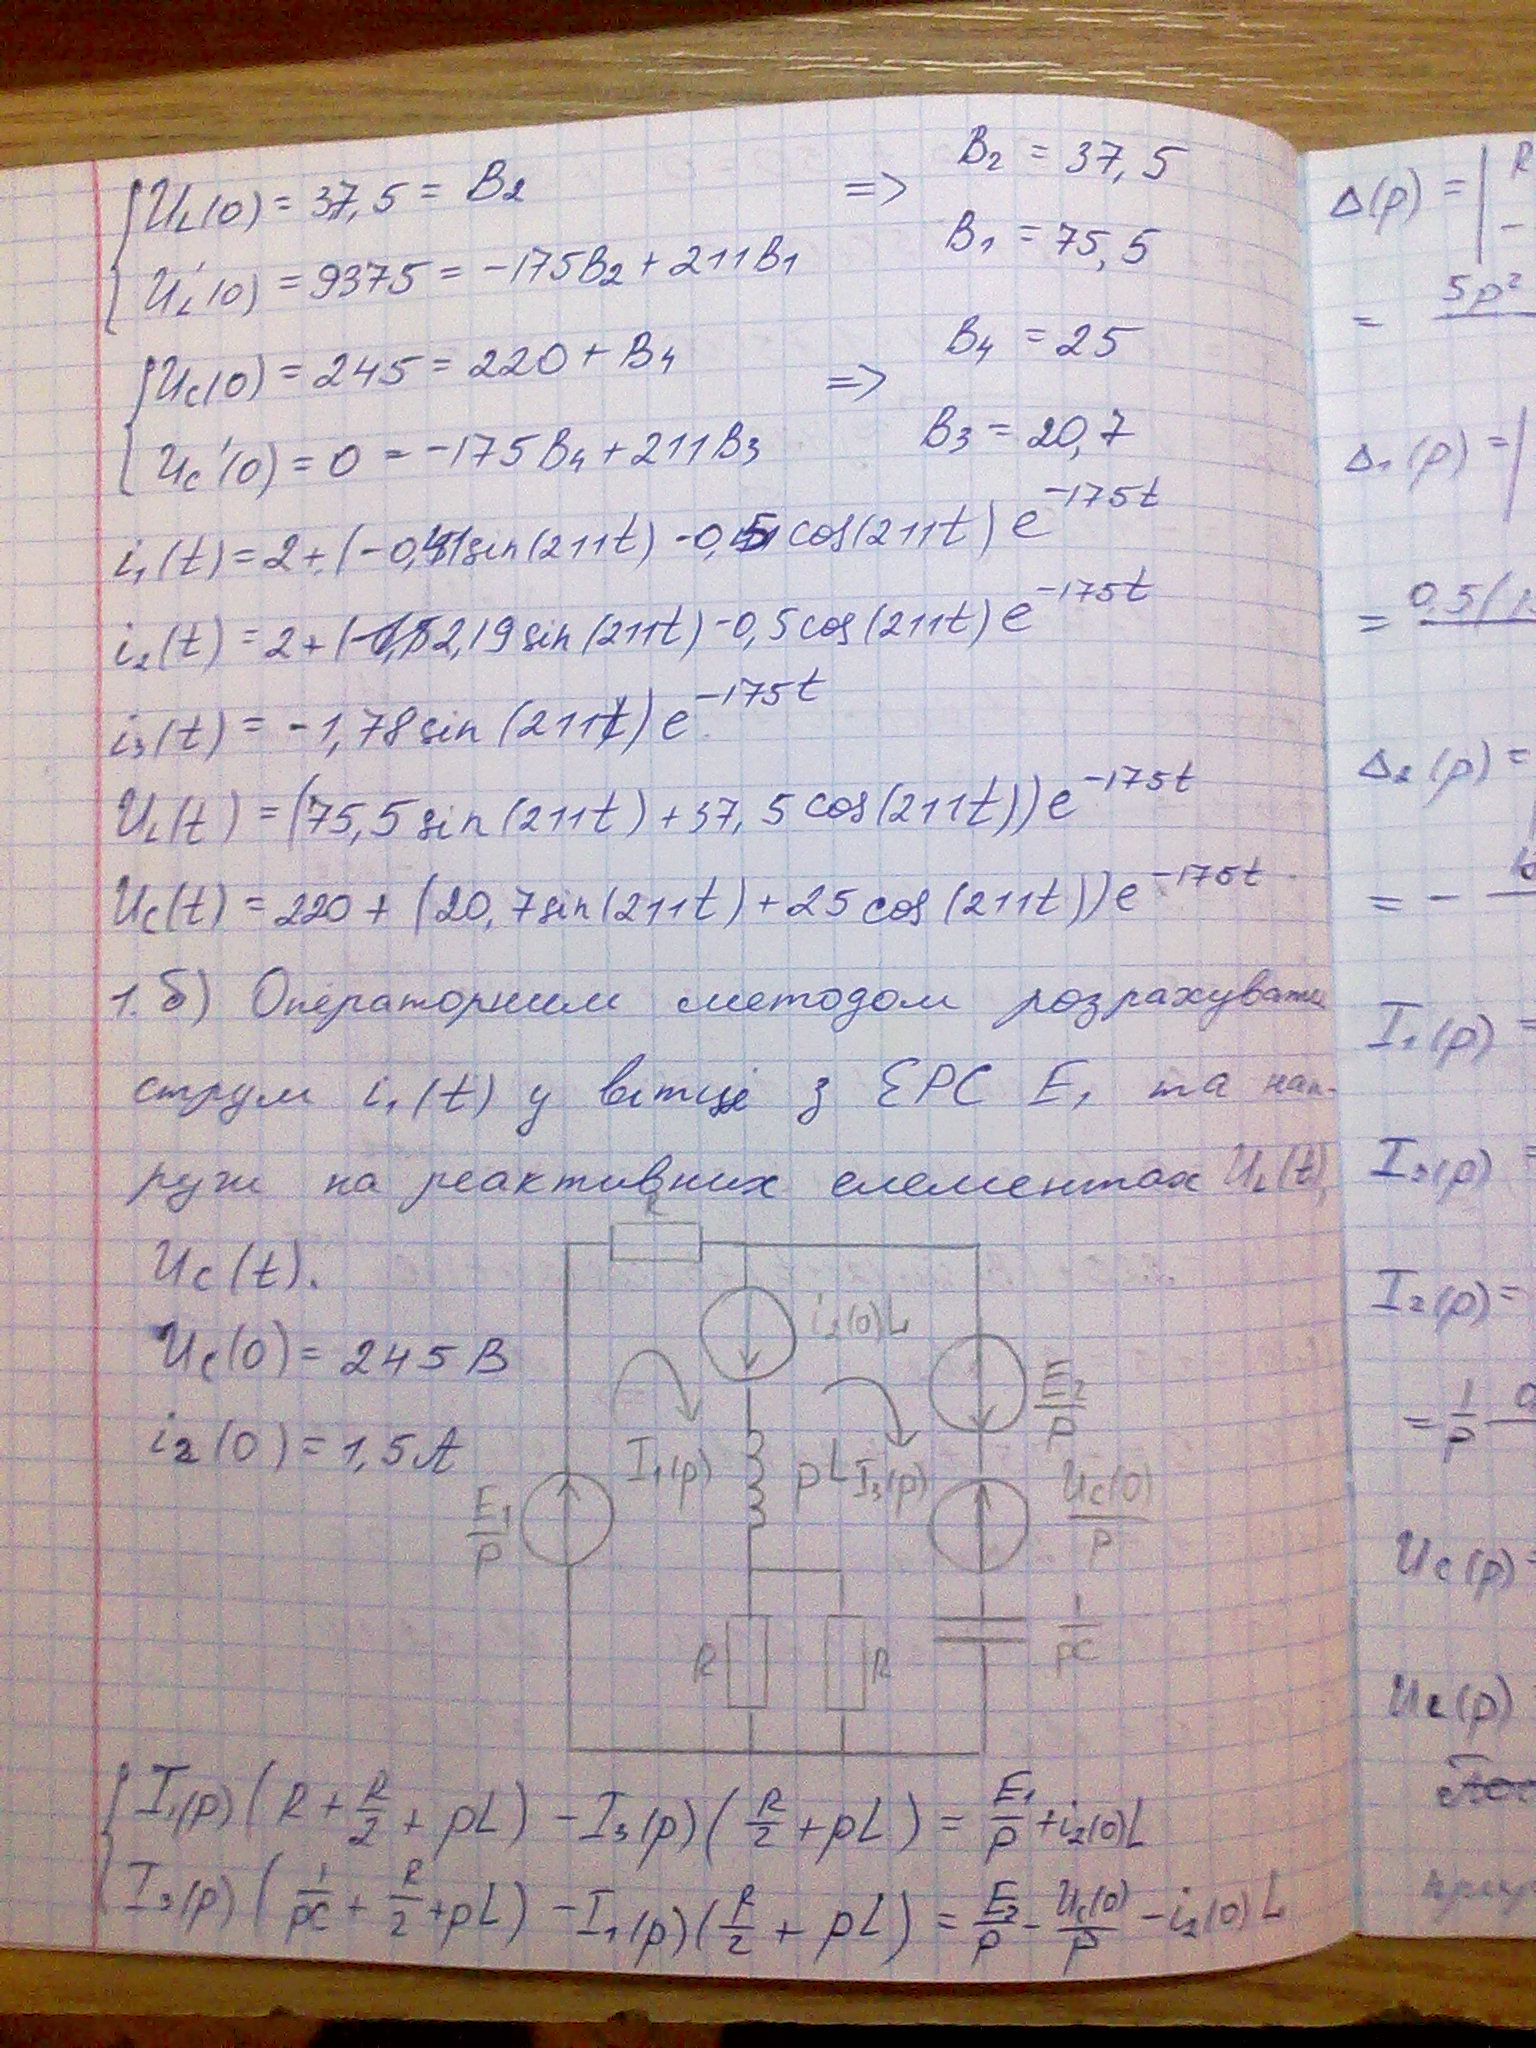 U_L(0) = 37,5 = B₂ => B₂ = 37,5
U_L'(0) = 9375 = -175B₂ + 211B₁ B₁ = 75,5
U_C(0) = 245 = 220 + B₄ => B₄ = 25
U_C'(0) = 0 = -175B₄ + 211B₃ B₃ = 20,7
i₁(t) = 2 + (-0,41 sin(211t) - 0,5 cos(211t) e^{-175t}
i₂(t) = 2 + (2,19 sin(211t) - 0,5 cos(211t) e^{-175t}
i₃(t) = -1,78 sin(211t) e^{-175t}
U_L(t) = (75,5 sin(211t) + 37,5 cos(211t)) e^{-175t}
U_C(t) = 220 + (20,7 sin(211t) + 25 cos(211t)) e^{-175t}
1.б) Операторним методом розрахувати
струм i₁(t) у вітці з ЕРС E₁ та нап-
руги на реактивних елементах U_L(t),
U_C(t).
U_C(0) = 245 В
i₂(0) = 1,5 А
R
i₂(0)L
E₂/p
I₁(p)
pL
I₃(p)
U_C(0)/p
E₁/p
R
R
1/pC
I₁(p)(R + R/2 + pL) - I₃(p)(R/2 + pL) = E₁/p + i₂(0)L
I₃(p)(1/pC + R/2 + pL) - I₁(p)(R/2 + pL) = E₂/p - U_C(0)/p - i₂(0)L
Δ(p) = | R
-
= 5p²
Δ₁(p) = |
= 0,5(
Δ₂(p) =
= -
I₁(p) =
I₃(p) =
I₂(p) =
= 1/p
U_C(p) =
U_L(p)